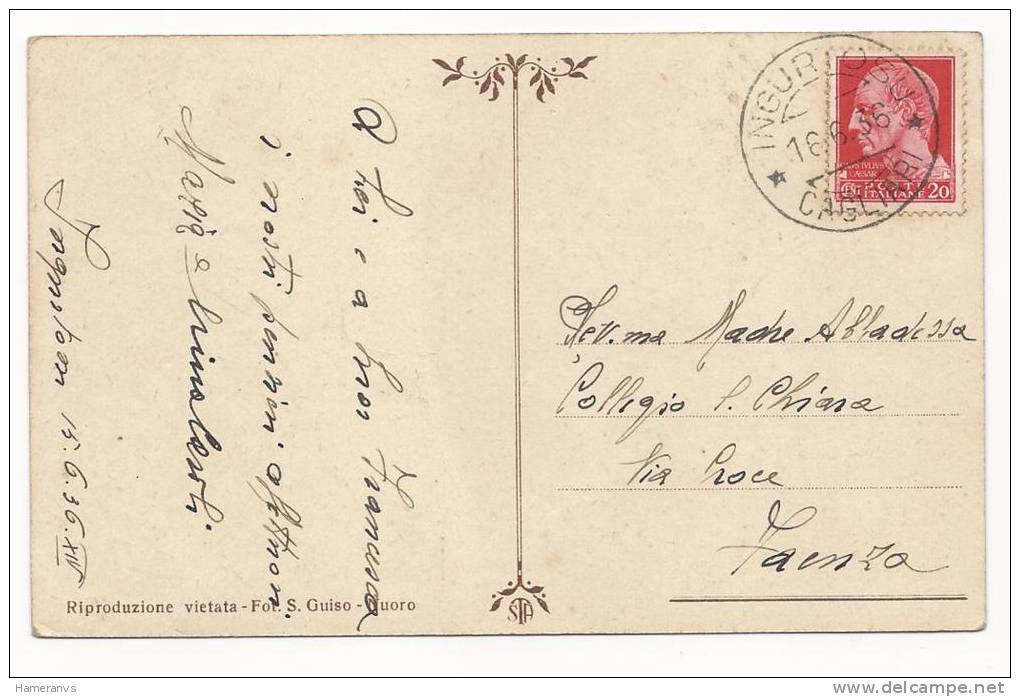 A Lei e a Suor Francesca
i nostri pensieri affettuosi
Maria e
15.6.36.XIV
INGURTOSU
16.6.36
CAGLIARI
IVLIVS
CAESAR
POSTE
ITALIANE 20
Rev.ma Madre Abbadessa
Collegio S. Chiara
Via Croce
Faenza
Riproduzione vietata - Fot. S. Guiso - Nuoro
STA
Hameranvs
delcampe.net